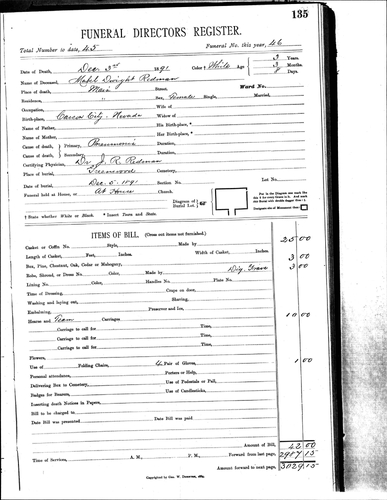 135
FUNERAL DIRECTORS REGISTER.
Total Number to date, 45 Funeral No. this year, 46
Date of Death, Dec. 3rd 1891 Color † White Age 3 Years
Name of Deceased, Mabel Dwight Redman 3 Months
Place of death, Main Street, Ward No. 8 Days
Residence, Sex, Female Single, Married,
Occupation, Wife of
Birth-place, Carson City, Nevada Widow of
Name of Father, His Birth-place,*
Name of Mother, Her Birth-place,*
Cause of death, Primary, Pneumonia Duration,
Cause of death, Secondary, Duration,
Certifying Physician, Dr. J. R. Redman
Place of burial, Greenwood Cemetery,
Date of burial, Dec. 5. 1891 Section No. Lot No.
Funeral held at House, or At Home Church.
Diagram of Burial Lot.
† State whether White or Black. * Insert Town and State.
ITEMS OF BILL. (Cross out items not furnished.)
Casket or Coffin No. Style, Made by 25 00
Length of Casket, Feet, Inches. Width of Casket, Inches.
Box, Pine, Chestnut, Oak, Cedar or Mahogany, 3 00
Robe, Shroud, or Dress No. Color, Made by Dig. Grave 3 00
Lining No. Color, Handles No. Plate No.
Time of Dressing, Crape on door,
Washing and laying out, Shaving,
Embalming, Preserver and Ice,
Hearse and Team Carriages 10 00
Carriage to call for Time,
Carriage to call for Time,
Carriage to call for Time,
Flowers,
Use of Folding Chairs, 4 Pair of Gloves, 1 00
Personal attendance, Posture or Help,
Delivering Box to Cemetery, Use of Pedestals or Pall,
Badges for Bearers, Use of Candlesticks,
Inserting death Notices in Papers,
Bill to be charged to
Date Bill was presented Date Bill was paid
Amount of Bill, 42 00
Time of Services, A. M., P. M., Forward from last page, 2987 15
Amount forward to next page, 3029 15